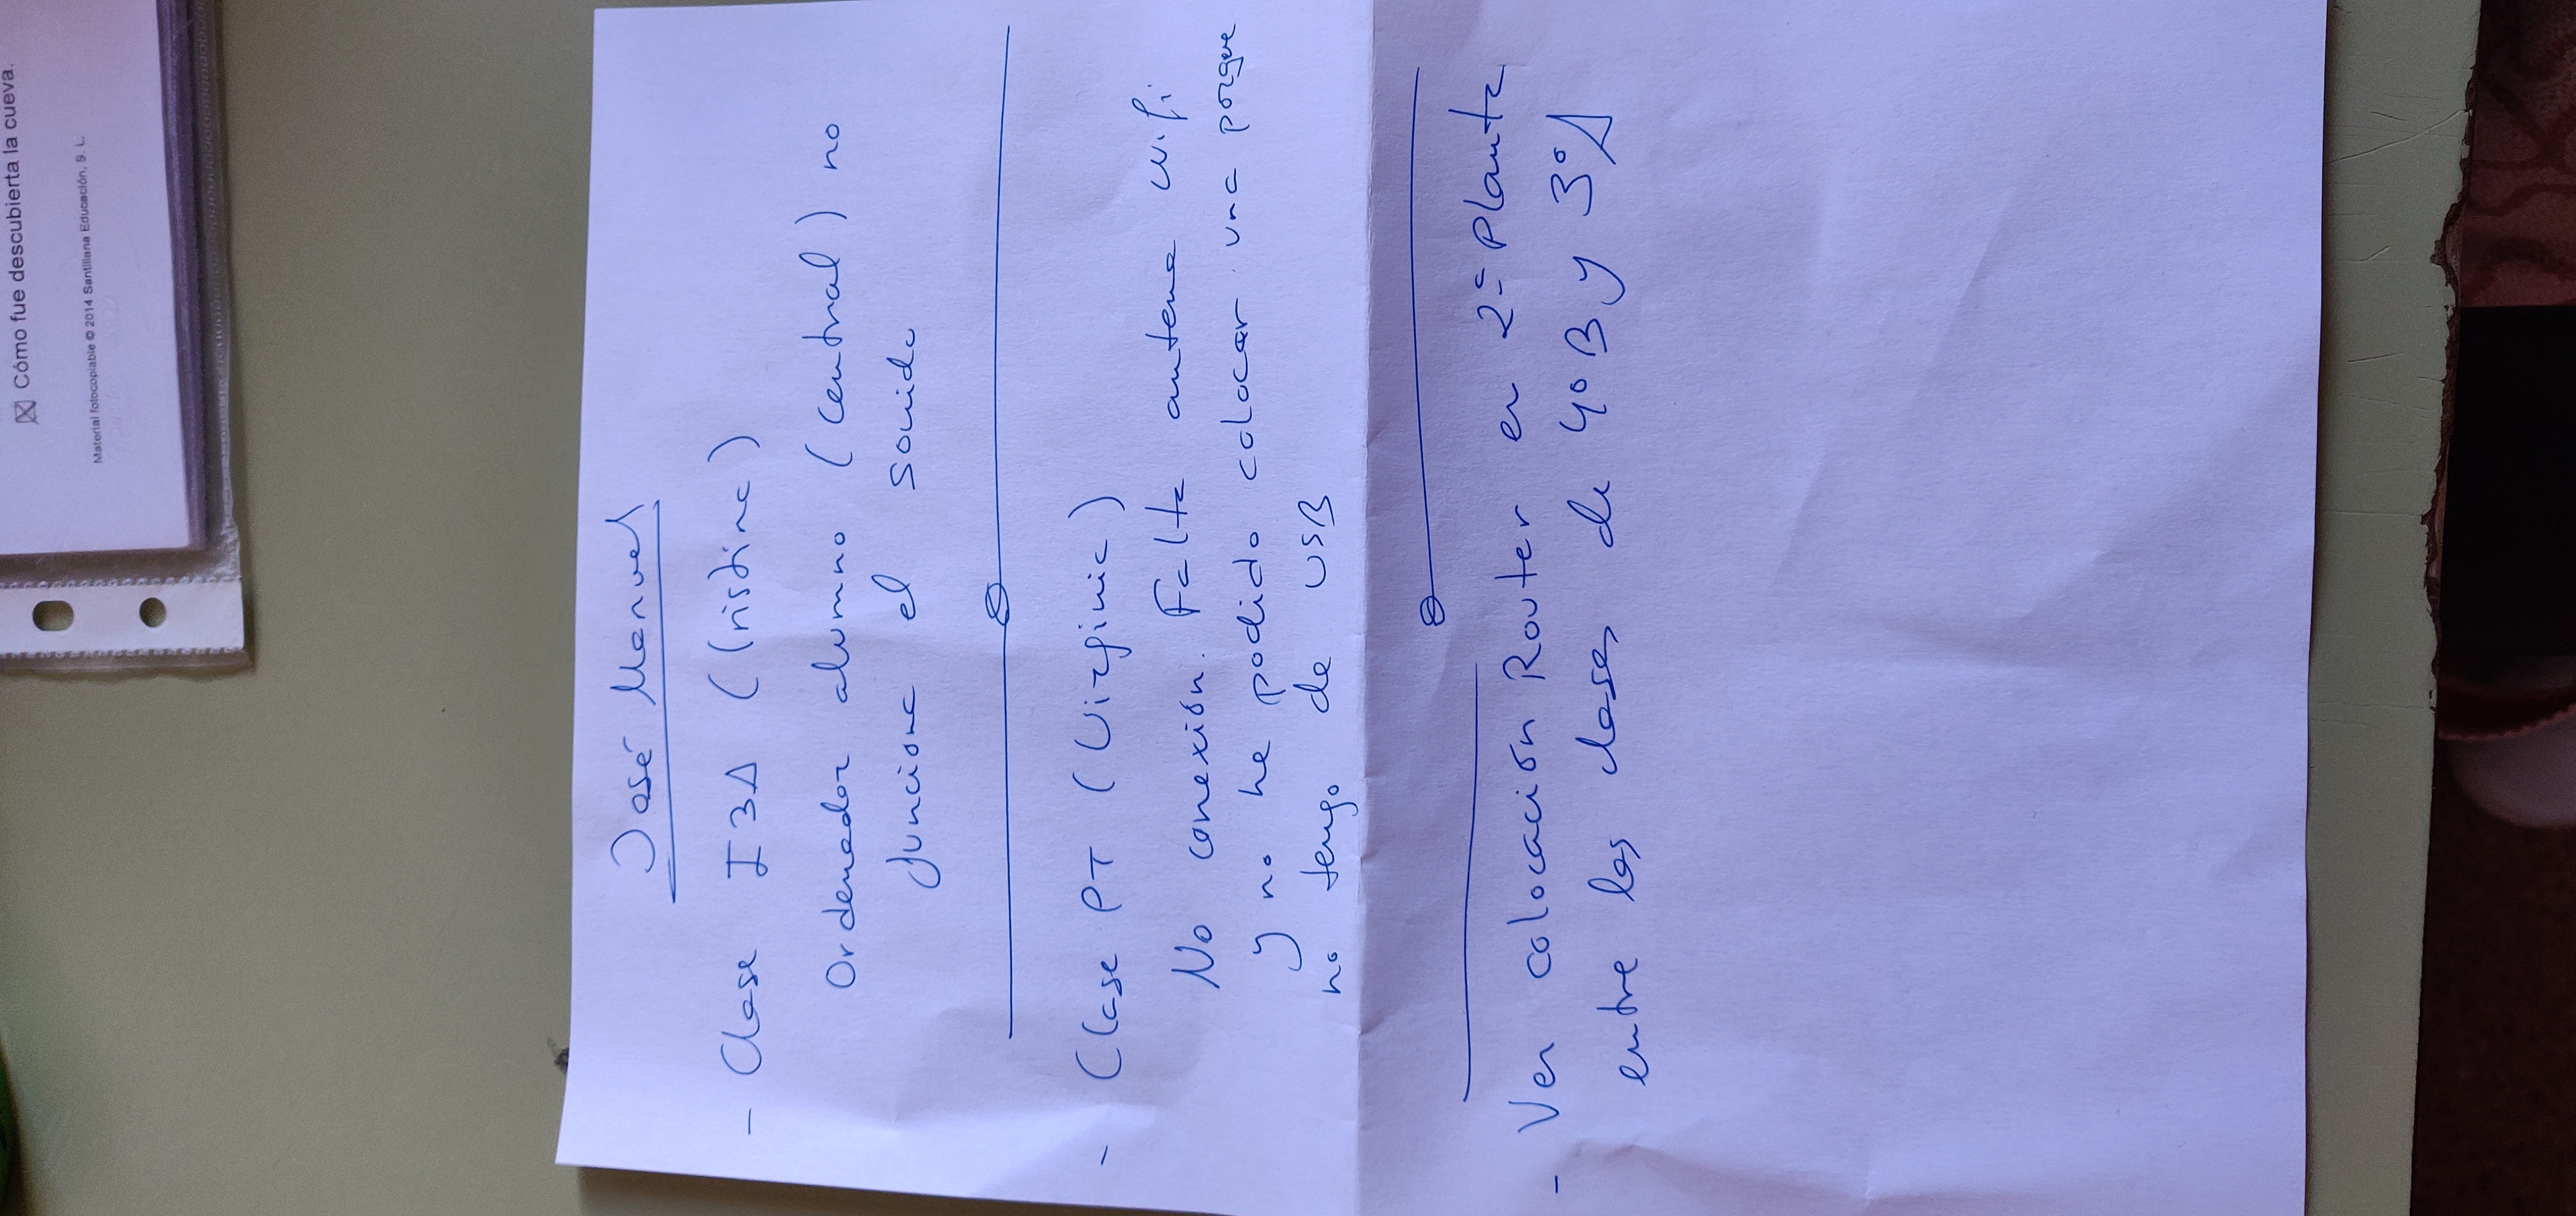 ☒ Cómo fue descubierta la cueva.
Material fotocopiable © 2014 Santillana Educación, S. L.
José Manuel
- Clase I3A (Cristina)
Ordenador alumno (central) no
funciona el sonido
- Clase PT (Virginia)
No conexión. Falta antena wifi
y no he podido colocar una porque
no tengo de USB
- Ver colocación Router en 2ª planta
entre las clases de 4º B y 3º A